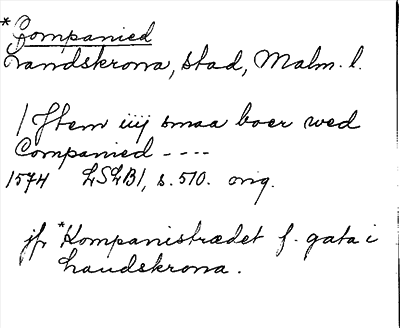 *Companied
Landskrona, stad, Malm. l.
/Jtem iiij smaa boer wed
Companied ----
1574 LSLB1, s. 510. orig.
jfr *Kompanistrædet f. gata i
Landskrona.